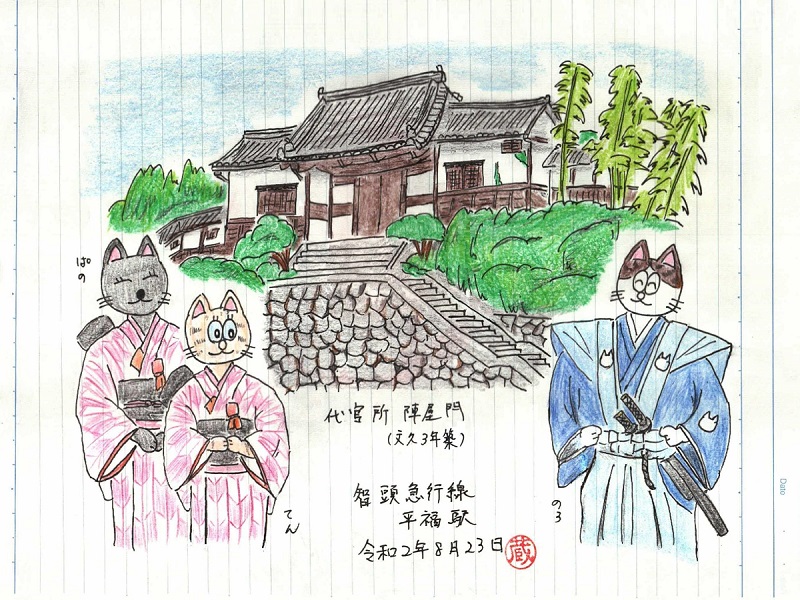 ぱの
てん
のろ
代官所 陣屋門
(文久3年築)
智頭急行線
平福駅
令和2年8月23日
蔵
Date